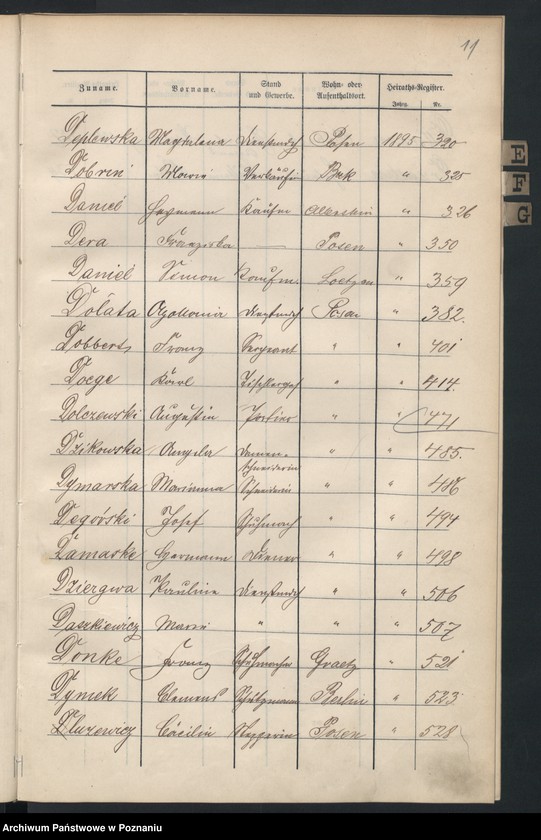 11
Zuname. Vorname. Stand und Gewerbe. Wohn- oder Aufenthaltsort. Heiraths-Register.
Jahrg. Nr.
Deplewska Magdalena Dienstmdch Posen 1895 320
Dobrin Marie Verkäuferin Buk " 325
Daniel Hermann Kaufm " 326
Dera Franziska — Posen " 350
Daniel Simon Kaufm. Loetzen " 359
Dolata Apollonia Dienstmdch Posen " 382.
Dobberts Franz Sergeant " " 401
Doege Karl Tischlerges " " 414.
Dolczewski Augustin Portier " " 471
Dzikowska Angela Damen-schneiderin " " 485.
Dymarska Marianna Schneiderin " " 486
Degórski Josef Schuhmach " " 494
Damaske Hermann Diener " " 498
Dziergwa Pauline Dienstmdch " " 506
Daszkiewicz Marie " " " 507
Donke Franz Schuhmacher Graetz " 521
Dymek Clemens Schutzmann Berlin " 523
Dluzewicz Cäcilie Stepperin Posen " 528
E
F
G
Archiwum Państwowe w Poznaniu